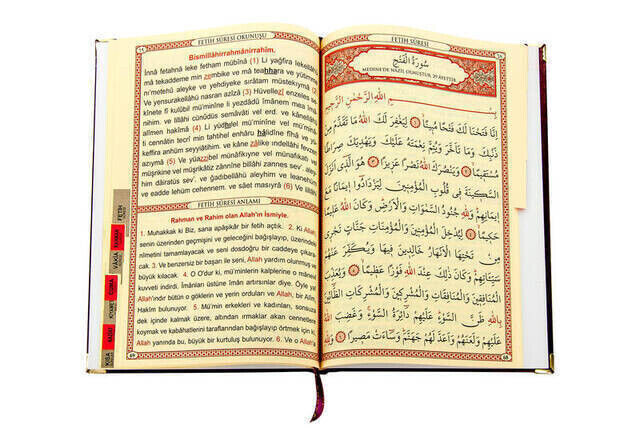 FETİH SÛRESİ OKUNUŞU
Bismillâhirrahmânirrahîm,
İnnâ fetahnâ leke fetham mübînâ (1) Li yağfira lekellâhü
mâ tekaddeme min zembike ve mâ teahhara ve yütimme
ni'metehû aleyke ve yehdiyeke sırâtam müstekıymâ (2)
Ve yensurakellâhü nasran azîzâ (3) Hüvellezî enzeles se
kînete fî kulûbil mü'minîne li yezdâdû îmânem mea îmâ
nihim. ve lillâhi cünûdüs semâvâti vel erd. ve kânellâhü
alîmen hakîmâ (4) Li yudhılel mü'minîne vel mü'minâ
ti cennâtin tecrî min tahtihel enhâru hâlidîne fîhâ ve yü
keffira anhüm seyyiâtihim. ve kâne zâlike indellâhi fevzen
azıymâ (5) Ve yüazzibel münâfikıyne vel münâfikâti vel
müşrikîne vel müşrikâtiz zânnîne billâhi zannes sev'. aley
him dâiratüs sev'. ve ğadıbellâhü aleyhim ve leanehüm
ve eadde lehüm cehennem. ve sâet masıyrâ (6) Ve lillâhi
FETİH SÛRESİ ANLAMI
Rahman ve Rahim olan Allah'ın İsmiyle.
1. Muhakkak ki Biz, sana apaşikâr bir fetih açtık. 2. Ki Allah
senin üzerinden geçmişini ve geleceğini bağışlayıp, üzerindeki
nîmetini tamamlayacak ve seni dosdoğru bir caddeye çıkara
cak. 3. Ve benzersiz bir başarı ile seni, Allah yardım olunmuş ve
büyük kılacak. 4. O O'dur ki, mü'minlerin kalplerine o mânevî
kuvveti indirdi. Îmânları üstüne îmân artırsınlar diye. Öyle ya
Allah'ındır bütün o göklerin ve yerin orduları ve Allah, bir Alîm
Hakîm bulunuyor. 5. Mü'min erkekleri ve kadınları, sonsuza
dek içinde kalmak üzere, altından ırmaklar akan cennetlere
koymak ve kabahatlerini taraflarından bağışlayıp örtmek için ki,
Allah yanında bu, büyük bir kurtuluş bulunuyor. 6. Ve o Allah'a
69
FETİH
VÂKIA
CUMA
KISA
FETİH SÛRESİ
سُورَةُ الْفَتْحِ
MEDİNE'DE NÂZİL OLMUŞTUR, 29 ÂYETTİR
بِسْمِ اللهِ الرَّحْمٰنِ الرَّحِيمِ
اِنَّا فَتَحْنَا لَكَ فَتْحًا مُبِينًا ﴿١﴾ لِيَغْفِرَ لَكَ اللهُ مَا تَقَدَّمَ مِنْ
ذَنْبِكَ وَمَا تَاَخَّرَ وَيُتِمَّ نِعْمَتَهُ عَلَيْكَ وَيَهْدِيَكَ صِرَاطًا
مُسْتَقِيمًا ﴿٢﴾ وَيَنْصُرَكَ اللهُ نَصْرًا عَزِيزًا ﴿٣﴾ هُوَ الَّذِي اَنْزَلَ
السَّكِينَةَ فِي قُلُوبِ الْمُؤْمِنِينَ لِيَزْدَادُوا اِيمَانًا مَعَ
اِيمَانِهِمْ وَلِلّٰهِ جُنُودُ السَّمٰوَاتِ وَالْاَرْضِ وَكَانَ اللهُ عَلِيمًا
حَكِيمًا ﴿٤﴾ لِيُدْخِلَ الْمُؤْمِنِينَ وَالْمُؤْمِنَاتِ جَنَّاتٍ تَجْرِي
مِنْ تَحْتِهَا الْاَنْهَارُ خَالِدِينَ فِيهَا وَيُكَفِّرَ عَنْهُمْ
سَيِّئَاتِهِمْ وَكَانَ ذٰلِكَ عِنْدَ اللهِ فَوْزًا عَظِيمًا ﴿٥﴾ وَيُعَذِّبَ
الْمُنَافِقِينَ وَالْمُنَافِقَاتِ وَالْمُشْرِكِينَ وَالْمُشْرِكَاتِ الظَّانِّينَ
بِاللهِ ظَنَّ السَّوْءِ عَلَيْهِمْ دَائِرَةُ السَّوْءِ وَغَضِبَ اللهُ
عَلَيْهِمْ وَلَعَنَهُمْ وَاَعَدَّ لَهُمْ جَهَنَّمَ وَسَاءَتْ مَصِيرًا ﴿٦﴾ وَلِلّٰهِ
68